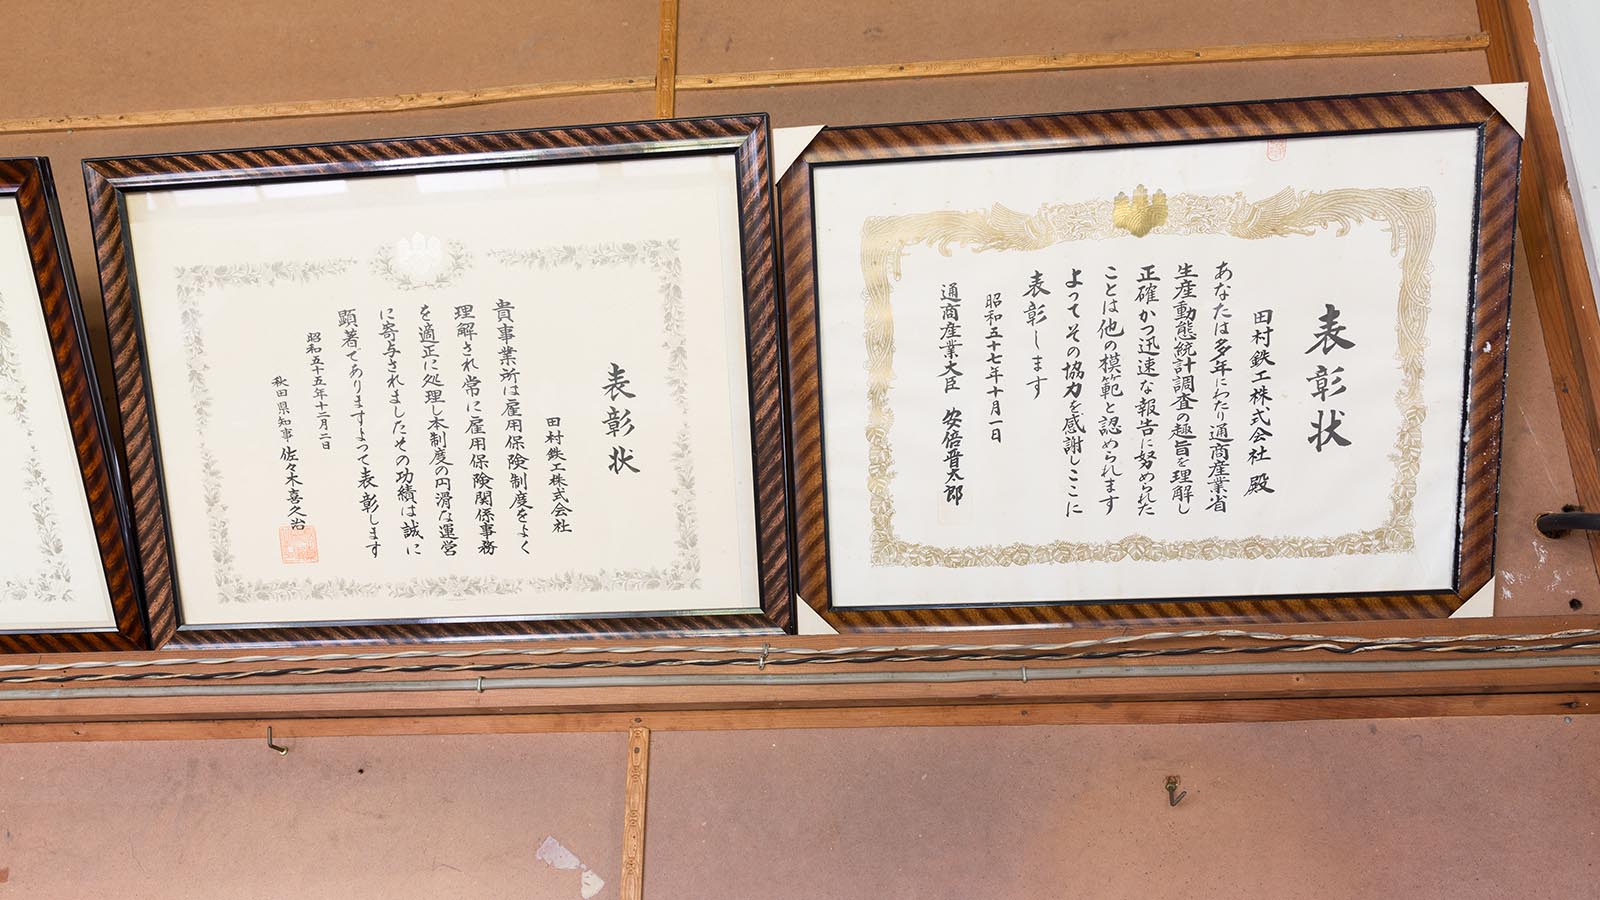 表彰状
田村鉄工株式会社 殿
あなたは多年にわたり通商産業省
生産動態統計調査の趣旨を理解し
正確かつ迅速な報告に努められた
ことは他の模範と認められます
よってその協力を感謝しここに
表彰します
昭和五十七年十月一日
通商産業大臣 安倍晋太郎
表彰状
田村鉄工株式会社
貴事業所は雇用保険制度をよく
理解され常に雇用保険関係事務
を適正に処理し本制度の円滑な運営
に寄与されましたその功績は誠に
顕著でありますよって表彰します
昭和五十五年十二月二日
秋田県知事 佐々木喜久治